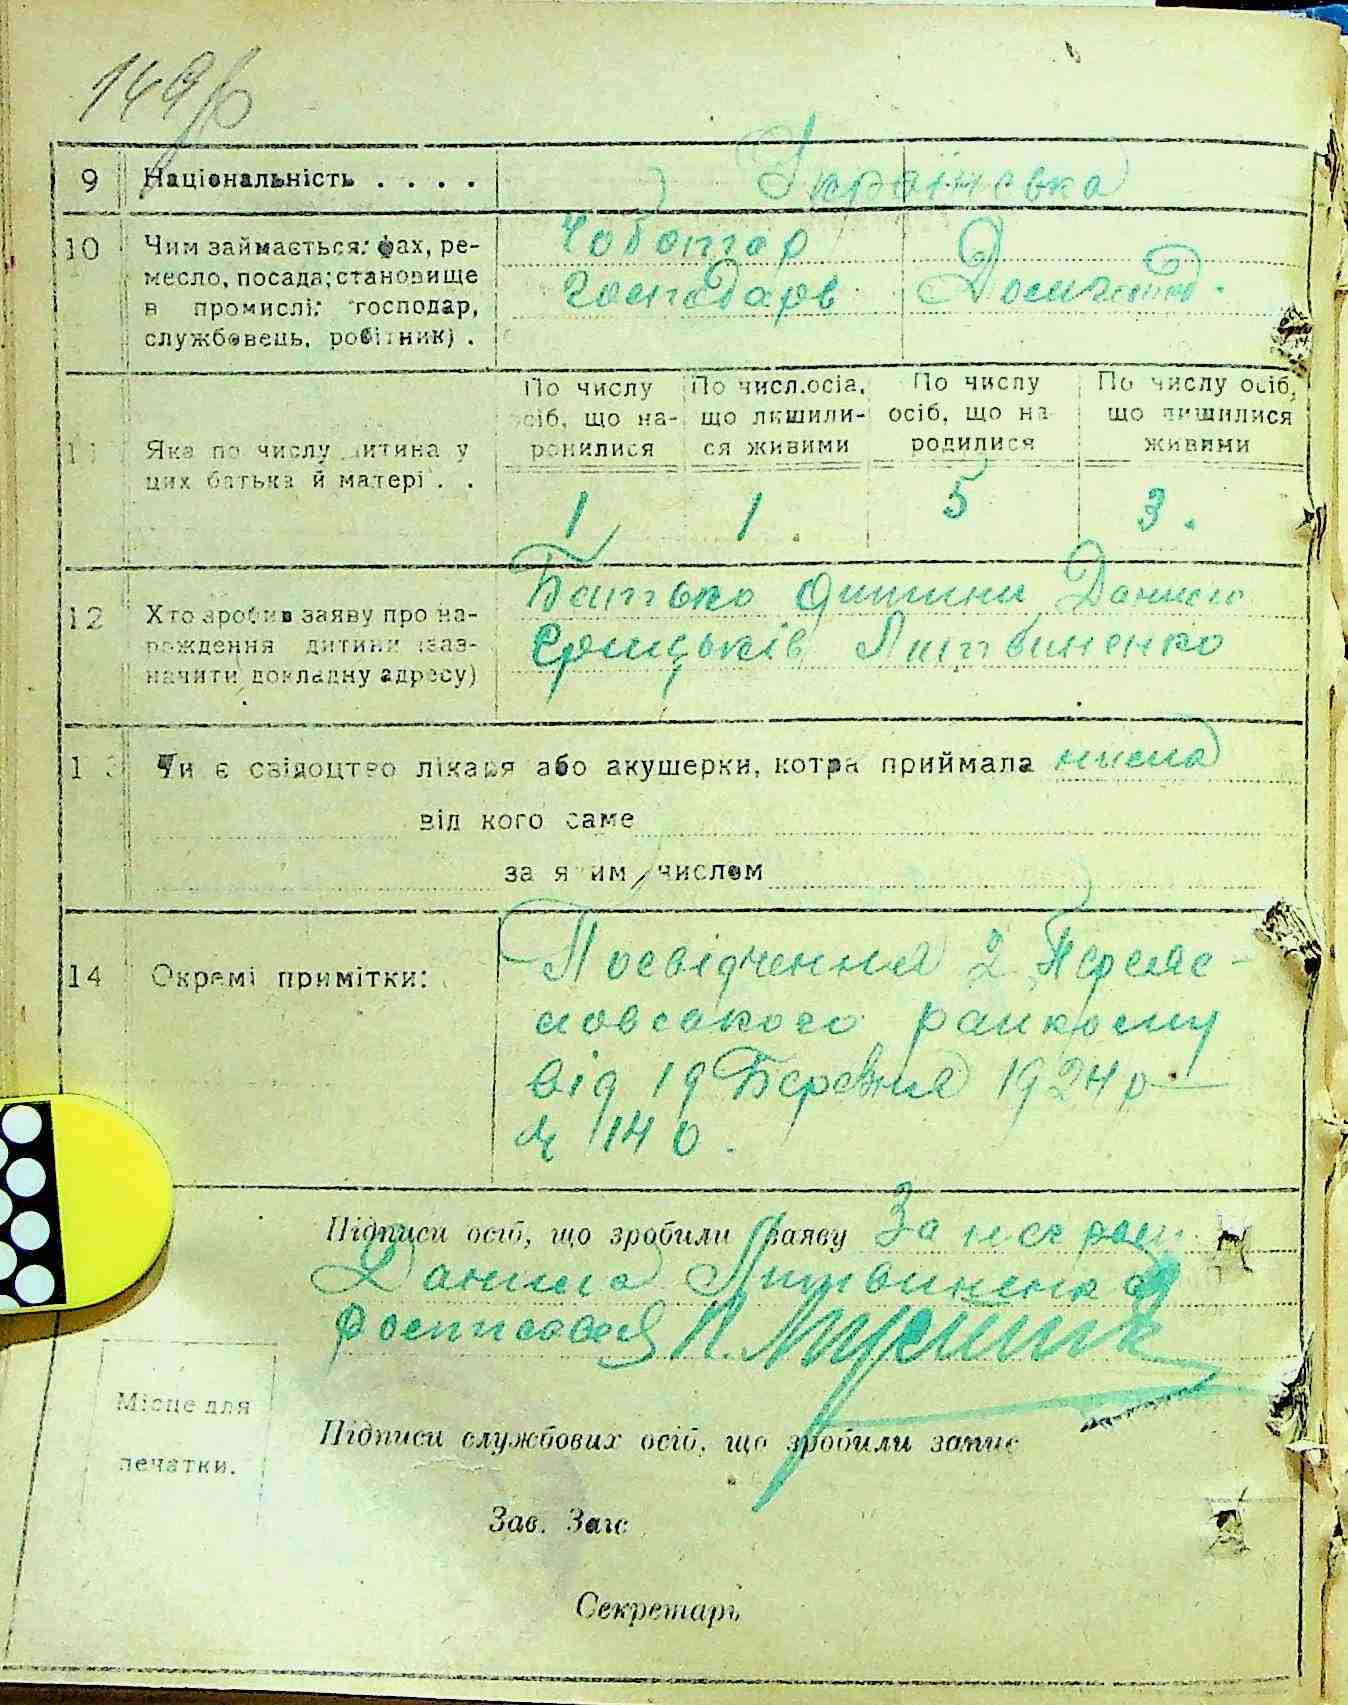 149
9 Національність . . . . Українська
10 Чим займається: фах, ре-
месло, посада; становище
в промислі: господар,
службовець, робітник) .
Чоботар
Господарь
По числу осіб, що на-родилися
По числ.осіа, що лишили-ся живими
По числу осіб, що на родилися
По числу осіб, що лишилися живими
11 Яка по числу дитина у
цих батька й матері . .
1 1 5 3.
12 Хто зробив заяву про на-
рождення дитини (заз-
начити докладну адресу)
Батько дитини Данило
Грицьків Литвиненко
13 Чи є свідоцтво лікаря або акушерки, котра приймала нема
від кого саме
за яким числом
14 Окремі примітки:
Посвідчення 2 Переяс-
ловського райкому
від 19 Березня 1924 р
№ 140.
Підписи осіб, що зробили заяву За неграм
Данила Литвиненка
росписався П.
Місце для
печатки.
Підписи службових осіб, що зробили запис
Зав. Загс
Секретарь